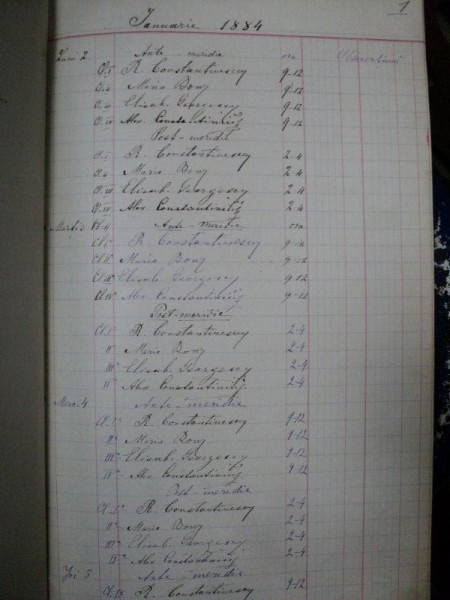 1
Ianuarie 1884
Ante-meridie ora Observatiuni
Luni 2. Cl. I R. Constantinescu 9-12
Cl. II Maria Bonş 9-12
Cl. III Elisab. Georgescu 9-12
Cl. IV Alex. Constantiniuş 9-12
Post-meridie
Cl. I. R. Constantinescu 2-4
Cl. II Maria Bonş 2-4
Cl. III Elisab. Georgescu 2-4
Cl. IV Alex. Constantiniuş 2-4
Marti 3 Ante-meridie ora
Cl. I R. Constantinescu 9-12
Cl. II Maria Bonş 9-12
Cl. III Elisab. Georgescu 9-12
Cl. IV Alex. Constantiniuş 9-12
Post-meridie
Cl. I R. Constantinescu 2-4
II Maria Bonş 2-4
III Elisab. Georgescu 2-4
IV Alex. Constantiniuş 2-4
Merc. 4 Ante-meridie
Cl. I R. Constantinescu 9-12
II Maria Bonş 9-12
III Elisab. Georgescu 9-12
IV Alex. Constantiniuş 9-12
Post-meridie
Cl. I R. Constantinescu 2-4
II Maria Bonş 2-4
III Elisab. Georgescu 2-4
IV Alex. Constantiniuş 2-4
Joi 5 Ante-meridie
R. Constantinescu 9-12